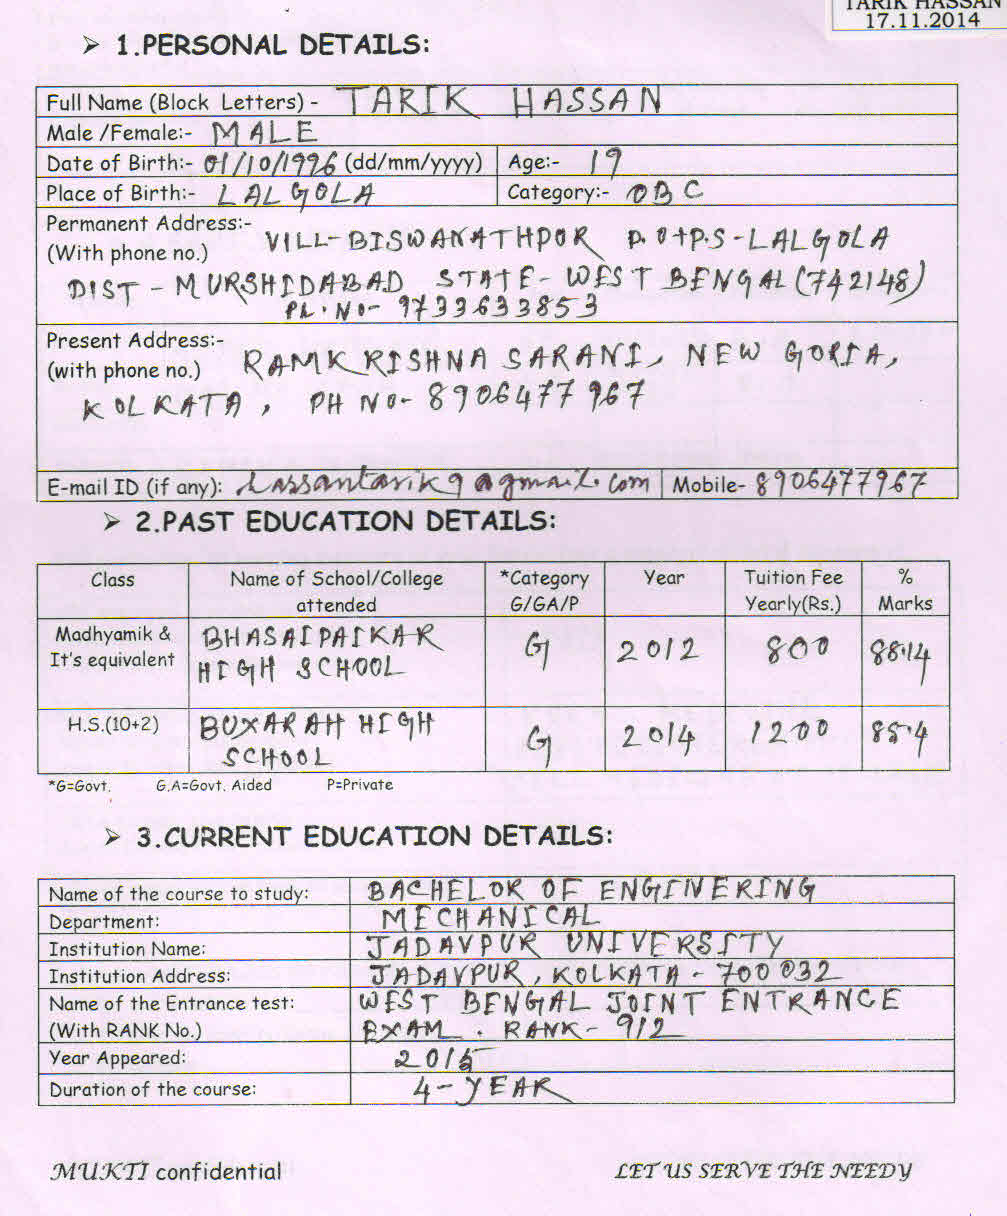 TARIK HASSAN
17.11.2014
➢ 1.PERSONAL DETAILS:
Full Name (Block Letters) - TARIK HASSAN
Male /Female:- MALE
Date of Birth:- 01/10/1996 (dd/mm/yyyy) Age:- 19
Place of Birth:- LALGOLA Category:- OBC
Permanent Address:-
(With phone no.) VILL-BISWANATHPUR P.O+P.S-LALGOLA
DIST - MURSHIDABAD STATE- WEST BENGAL (742148)
Ph.No- 9733633853
Present Address:-
(with phone no.) RAMKRISHNA SARANI, NEW GORIA,
KOLKATA, PH NO- 8906477967
E-mail ID (if any): hassantarik9@gmail.com Mobile- 8906477967
➢ 2.PAST EDUCATION DETAILS:
Class Name of School/College *Category Year Tuition Fee %
attended G/GA/P Yearly(Rs.) Marks
Madhyamik & BHASAIPAIKAR G 2012 800 88.14
It's equivalent HIGH SCHOOL
H.S.(10+2) BUXARAH HIGH G 2014 1200 85.4
SCHOOL
*G=Govt. G.A=Govt. Aided P=Private
➢ 3.CURRENT EDUCATION DETAILS:
Name of the course to study: BACHELOR OF ENGINVERING
Department: MECHANICAL
Institution Name: JADAVPUR UNIVERSITY
Institution Address: JADAVPUR, KOLKATA - 700032
Name of the Entrance test: WEST BENGAL JOINT ENTRANCE
(With RANK No.) EXAM. RANK- 912
Year Appeared: 2015
Duration of the course: 4-YEAR
MUKTI confidential LET US SERVE THE NEEDY